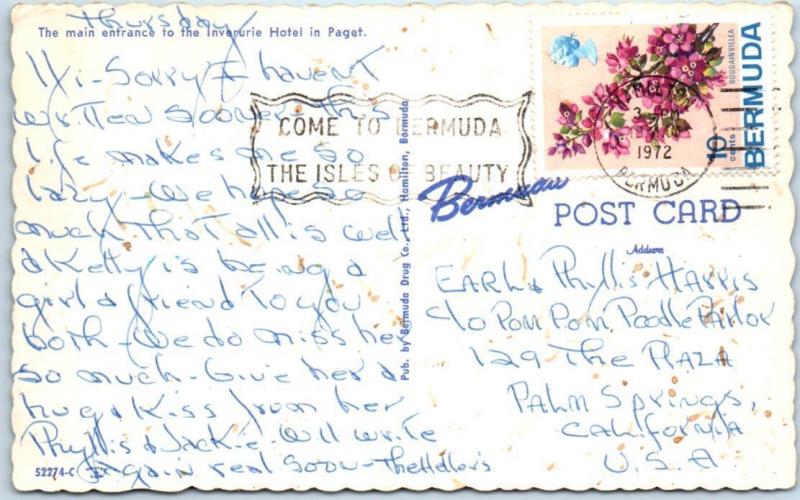 The main entrance to the Inverurie Hotel in Paget.
Thursday
Hi - Sorry I haven't
written sooner - this
life makes me so
lazy - We hope so
much that all is well
& Kelly is being a
girl & friend to you
both - We do miss her
so much - Give her a
hug & kiss from her
Phyllis & Jackie. Will write
again real soon - The Hellers
52274-C
Pub. by Bermuda Drug Co., Ltd., Hamilton, Bermuda
COME TO BERMUDA
THE ISLES OF BEAUTY
BOUGAINVILLEA
BERMUDA
10 cents
1972
BERMUDA
Bermuda
POST CARD
Address
EARL & Phyllis HARRIS
c/o Pom Pom Poodle Parlor
129 The PLAZA
PALM SPRINGS,
CALIFORNIA
U.S.A.